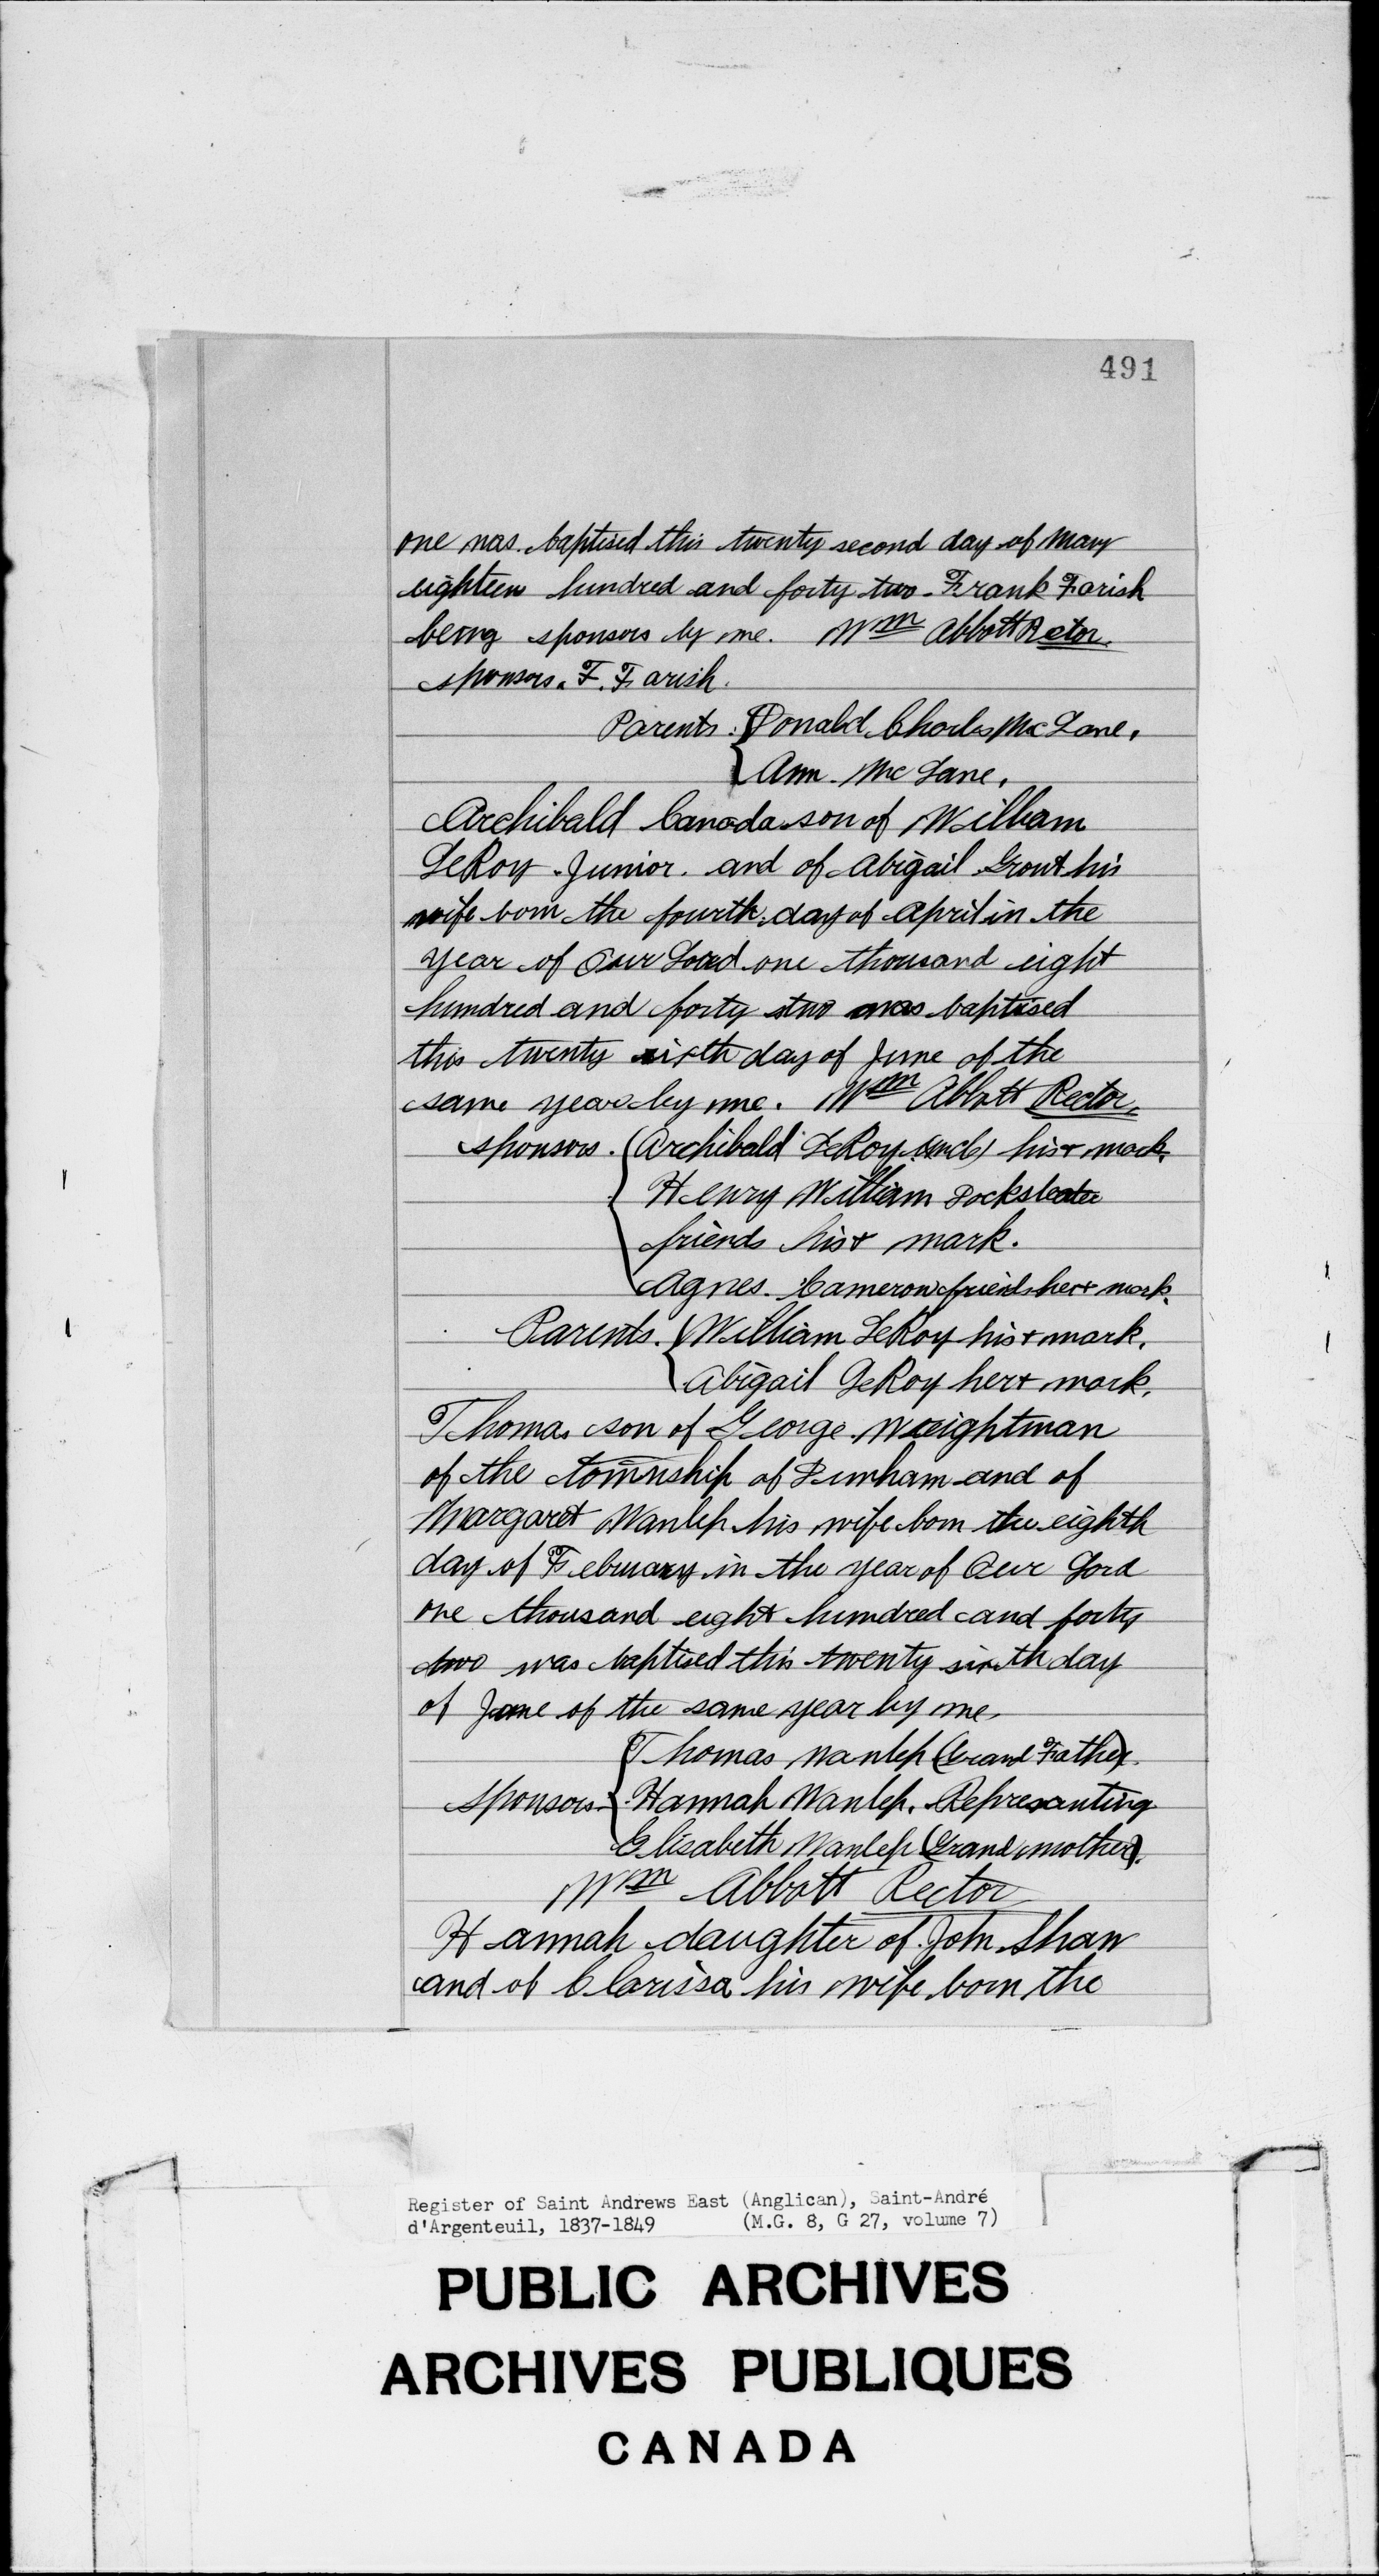 491
one was baptised this twenty second day of May
eighteen hundred and forty two. Frank Farish
being sponsors by me. Wm Abbott Rector.
sponsors. F. Farish.
Parents. { Donald Charles McLane.
Ann. McLane.
Archibald Canada son of William
LeRoy. Junior. and of Abigail Grout his
wife born the fourth day of April in the
year of Our Lord one thousand eight
hundred and forty two was baptised
this twenty sixth day of June of the
same year by me. Wm Abbott Rector.
sponsors. { Archibald LeRoy (uncle) his + mark.
Henry William Dockstater
friends his + mark.
Agnes. Cameron friends her + mark.
Parents. { William LeRoy his + mark.
Abigail LeRoy her + mark.
Thomas son of George Weightman
of the township of Dunham and of
Margaret Wanlep his wife born the eighth
day of February in the year of Our Lord
one thousand eight hundred and forty
two was baptised this twenty sixth day
of June of the same year by me,
{ Thomas Wanlep (Grand Father).
sponsors. Hannah Wanlep. Represanting
Elisabeth Wanlep (Grand mother).
Wm Abbott Rector
Hannah daughter of John Shaw
and of Clarissa his wife born the
Register of Saint Andrews East (Anglican), Saint-André
d'Argenteuil, 1837-1849 (M.G. 8, G 27, volume 7)
PUBLIC ARCHIVES
ARCHIVES PUBLIQUES
CANADA